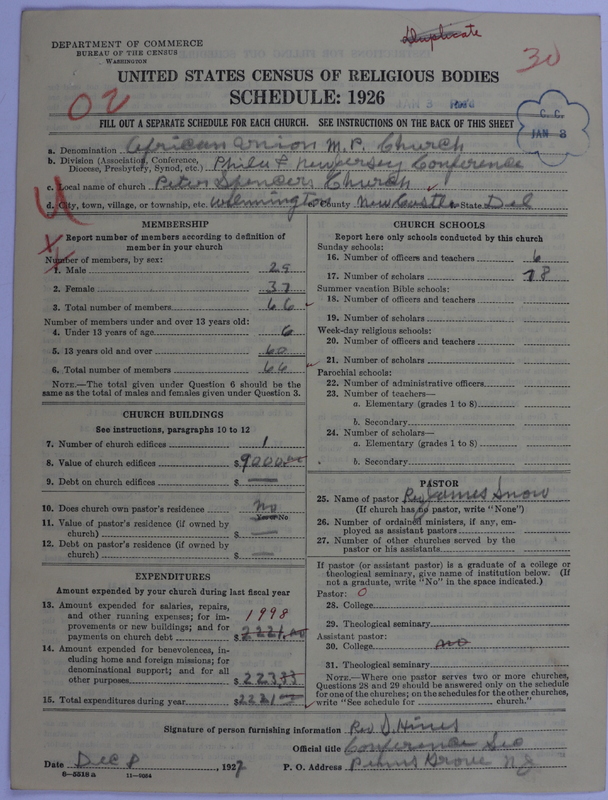 Duplicate
30
DEPARTMENT OF COMMERCE
BUREAU OF THE CENSUS
WASHINGTON
UNITED STATES CENSUS OF RELIGIOUS BODIES
SCHEDULE: 1926
02
FILL OUT A SEPARATE SCHEDULE FOR EACH CHURCH. SEE INSTRUCTIONS ON THE BACK OF THIS SHEET
C. C.
JAN 3
a. Denomination African Union M. P. Church
b. Division (Association, Conference, Diocese, Presbytery, Synod, etc.) Phila & New Jersey Conference
c. Local name of church Peter Spencers Church
d. City, town, village, or township, etc. Wilmington County New Castle State Del
MEMBERSHIP
Report number of members according to definition of
member in your church
Number of members, by sex:
1. Male 29
2. Female 37
3. Total number of members 66
Number of members under and over 13 years old:
4. Under 13 years of age 6
5. 13 years old and over 60
6. Total number of members 66
NOTE.—The total given under Question 6 should be the
same as the total of males and females given under Question 3.
CHURCH BUILDINGS
See instructions, paragraphs 10 to 12
7. Number of church edifices 1
8. Value of church edifices $9000.00
9. Debt on church edifices $ —
10. Does church own pastor's residence No
Yes or No
11. Value of pastor's residence (if owned by
church) $ —
12. Debt on pastor's residence (if owned by
church) $ —
EXPENDITURES
Amount expended by your church during last fiscal year
13. Amount expended for salaries, repairs,
and other running expenses; for im-
provements or new buildings; and for
payments on church debt 1998 $2221.00
14. Amount expended for benevolences, in-
cluding home and foreign missions; for
denominational support; and for all
other purposes $223.33
15. Total expenditures during year $2221
CHURCH SCHOOLS
Report here only schools conducted by this church
Sunday schools:
16. Number of officers and teachers 6
17. Number of scholars 78
Summer vacation Bible schools:
18. Number of officers and teachers
19. Number of scholars
Week-day religious schools:
20. Number of officers and teachers
21. Number of scholars
Parochial schools:
22. Number of administrative officers
23. Number of teachers—
a. Elementary (grades 1 to 8)
b. Secondary
24. Number of scholars—
a. Elementary (grades 1 to 8)
b. Secondary
PASTOR
25. Name of pastor Rev James Snow
(If church has no pastor, write "None")
26. Number of ordained ministers, if any, em-
ployed as assistant pastors
27. Number of other churches served by the
pastor or his assistants
If pastor (or assistant pastor) is a graduate of a college or
theological seminary, give name of institution below. (If
not a graduate, write "No" in the space indicated.)
Pastor: 0
28. College
29. Theological seminary
Assistant pastor:
30. College no
31. Theological seminary
NOTE.—Where one pastor serves two or more churches,
Questions 28 and 29 should be answered only on the schedule
for one of the churches; on the schedules for the other churches,
write "See schedule for church."
Signature of person furnishing information Rev D. Hines
Official title Conference Sec
Date Dec 8, 1927 P. O. Address Penns Grove NJ
6—5518a 11—9084